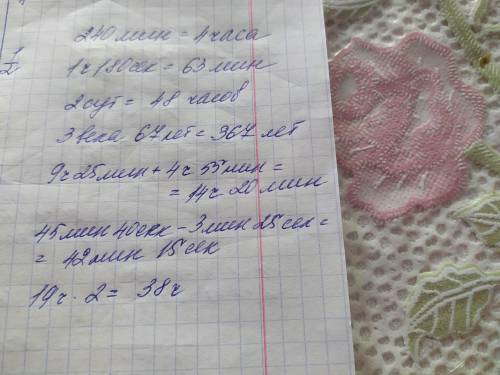 240 мин = 4 часа
1
2
1 ч 180 сек = 63 мин
2 сут = 48 часов
3 века 67 лет = 367 лет
9 ч 25 мин + 4 ч 55 мин =
= 14 ч 20 мин
45 мин 40 сек - 3 мин 25 сек =
= 42 мин 15 сек
19 ч · 2 = 38 ч